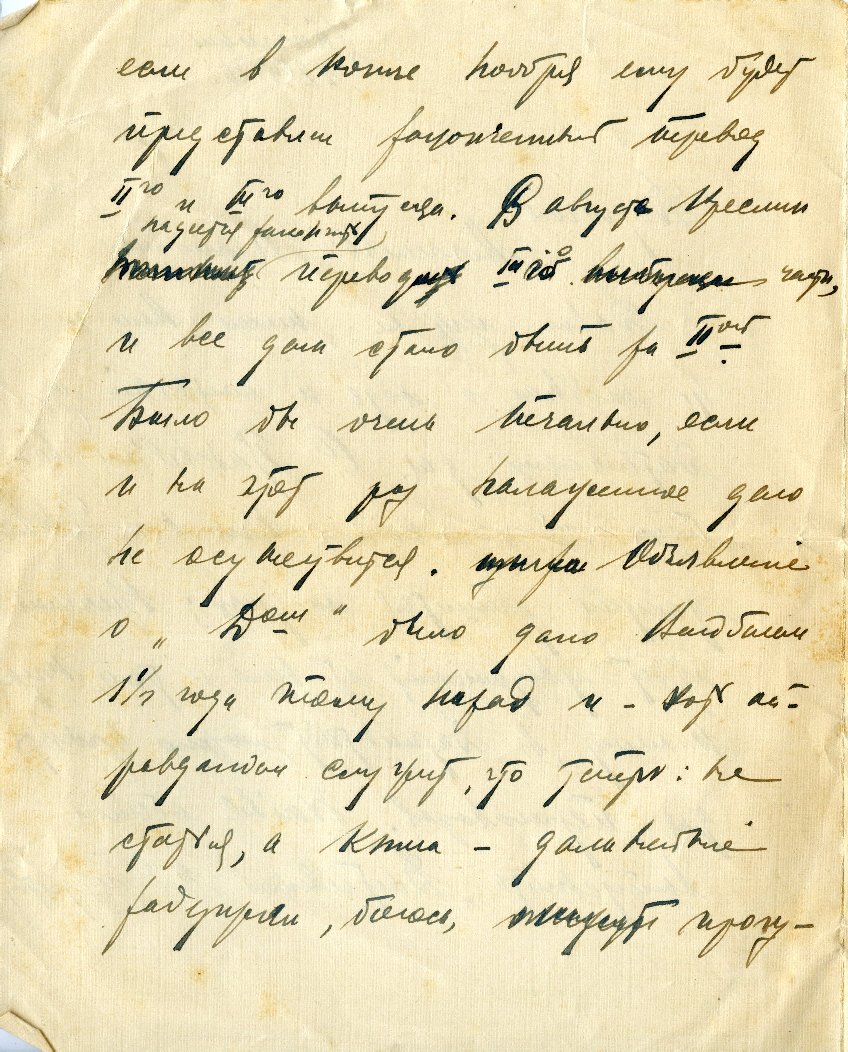 если в конце ноября ему будет
представлен законченный перевод
II го и III го выпуска. В августе Креслин
надеется закончить
перевод III ей части,
и все дело стало бы за II ой.
Было бы очень печально, если
и на этот раз налаженное дело
не осуществится. Объявление
о „Дом" было дано
1½ года тому назад и – хотя оп-
равданием служит, что теперь: не
статья, а книга – дальнейшие
задержки, боюсь,